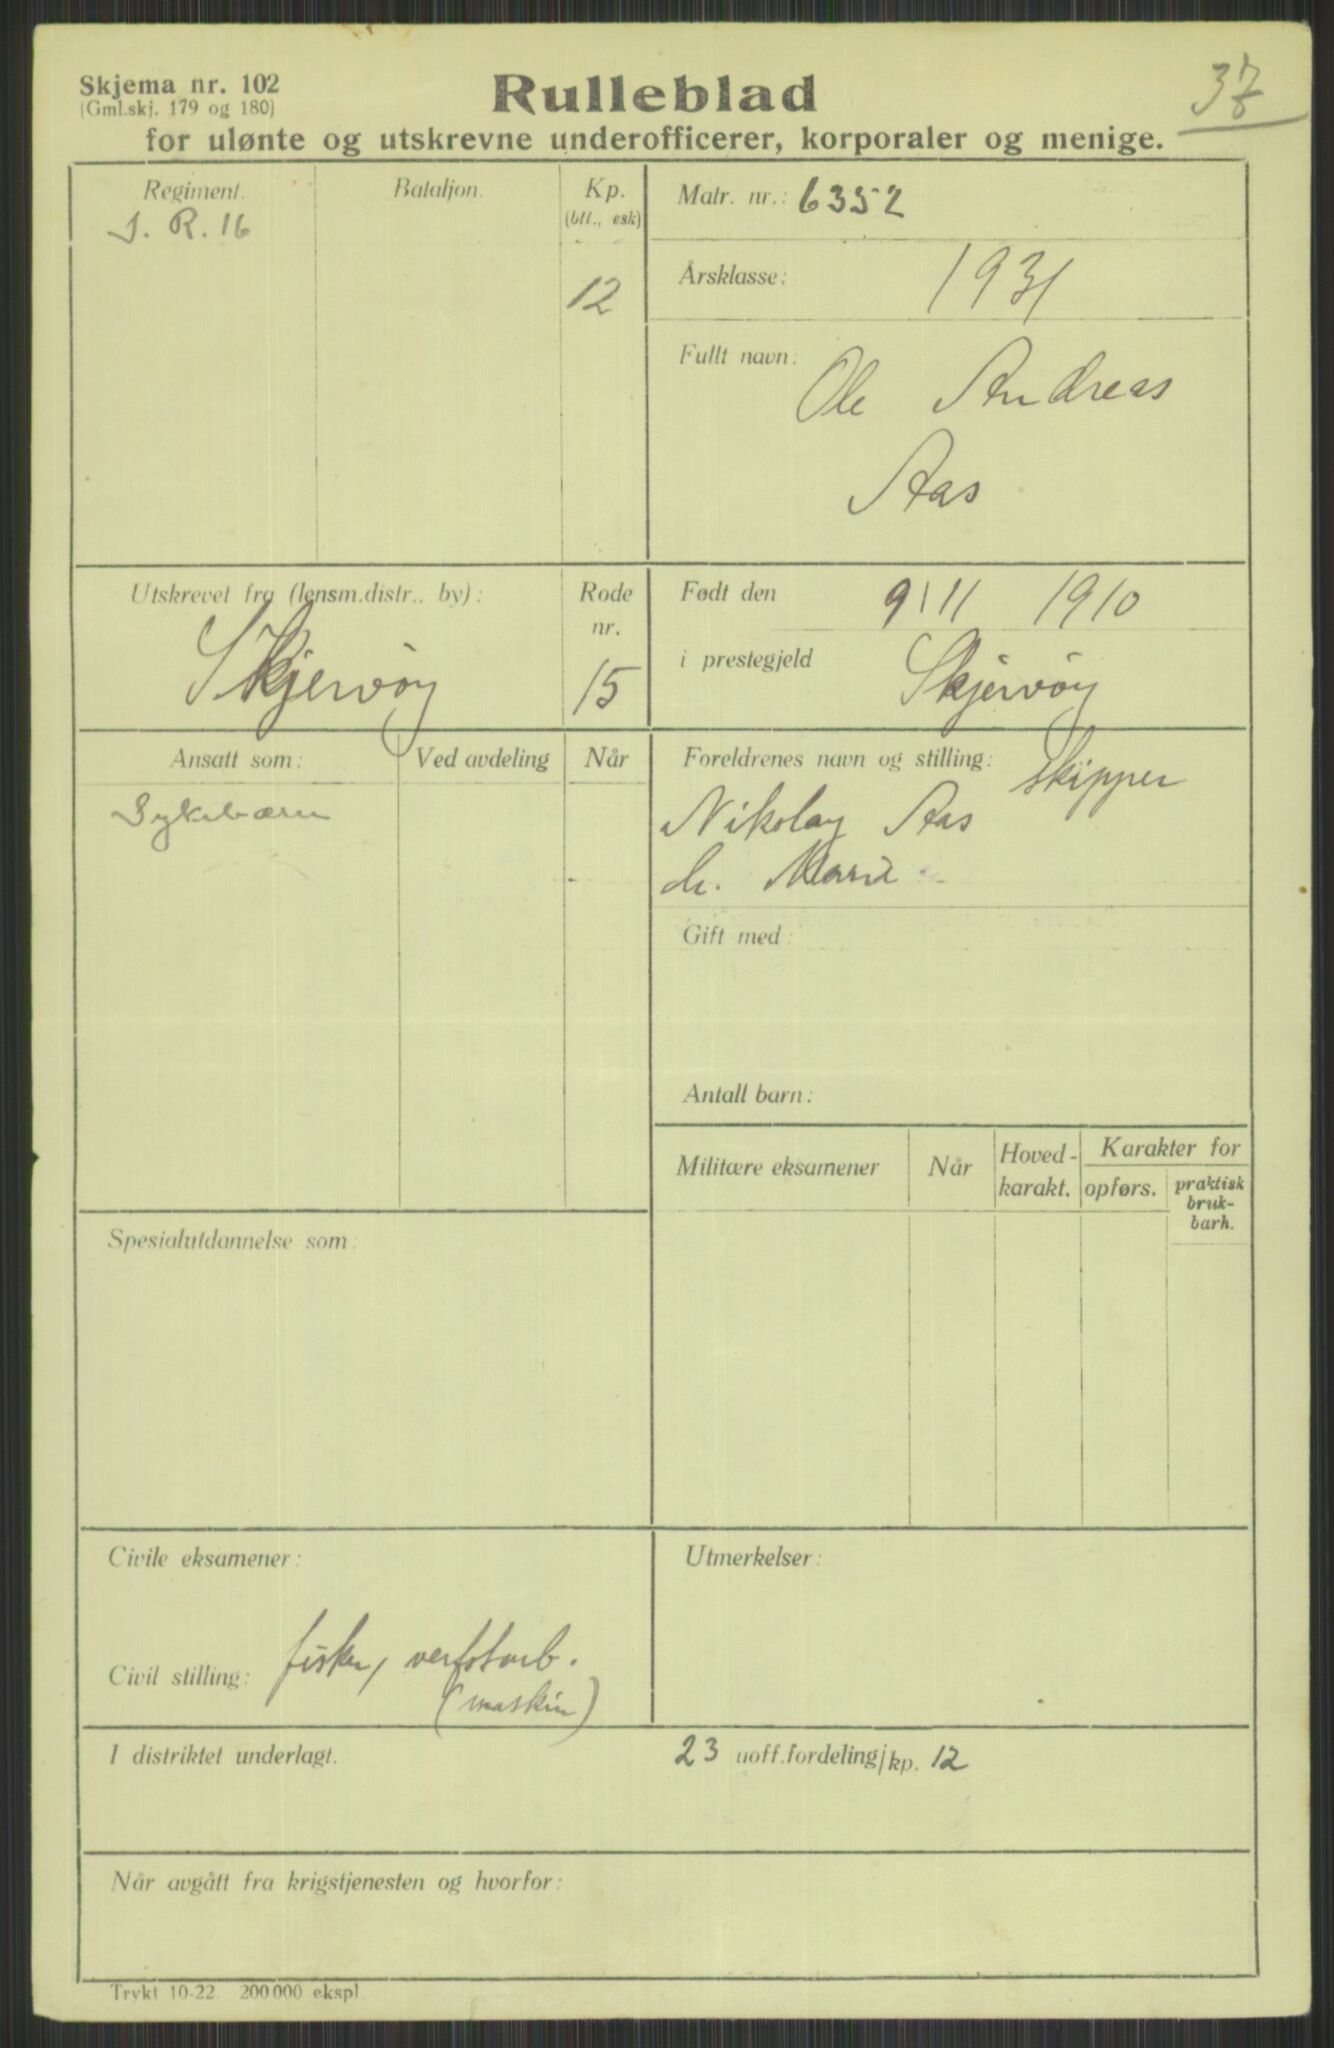 Skjema nr. 102
(Gml.skj. 179 og 180)
Rulleblad
37
for ulønte og utskrevne underofficerer, korporaler og menige.
Regiment.
J. R. 16
Bataljon.
Kp.
(btl., esk)
12
Matr. nr.: 6352
Årsklasse: 1931
Fullt navn: Ole Andreas
Aas
Utskrevet fra (lensm.distr.. by):
Skjervöy
Rode
nr.
15
Født den 9/11 1910
i prestegjeld Skjervöy
Ansatt som:
Ved avdeling
Når
Sykebærer
Foreldrenes navn og stilling: skipper
Nikolay Aas
h. Marie
Gift med:
Antall barn:
Militære eksamener
Når
Hoved-
karakt.
Karakter for
opførs.
praktisk
bruk-
barh.
Spesialutdannelse som:
Civile eksamener:
Utmerkelser:
Civil stilling: fisker, verfstarb.
(maskin)
I distriktet underlagt.
23 uoff.fordeling/kp. 12
Når avgått fra krigstjenesten og hvorfor:
Trykt 10-22. 200 000 ekspl